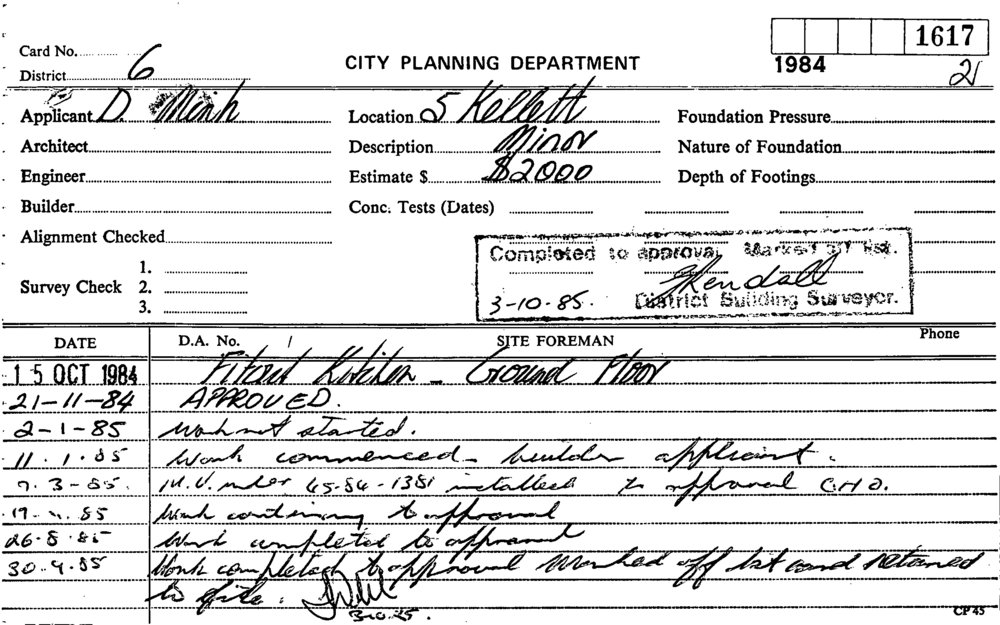 Card No. 6
District
CITY PLANNING DEPARTMENT
1617
1984
2
Applicant D. Minh
Location 5 Kellett
Foundation Pressure
Architect
Description Minor
Nature of Foundation
Engineer
Estimate $ $2000
Depth of Footings
Builder
Conc. Tests (Dates)
Alignment Checked
Completed to approval Marked off list.
Survey Check 1. 2. 3.
3-10-85. District Building Surveyor.
DATE D.A. No. SITE FOREMAN Phone
15 OCT 1984 Fitout Kitchen - Ground Floor
21-11-84 APPROVED.
2-1-85 Work not started.
11.1.85 Work commenced - builder applicant.
7.3-85. M.V. under 45-84-1381 installed to approval
85 Work continuing to approval
26.8.85 Work completed to approval
30.9.85 Work completed to approval marked off list card returned
to file.
3.10.85.
CP 45